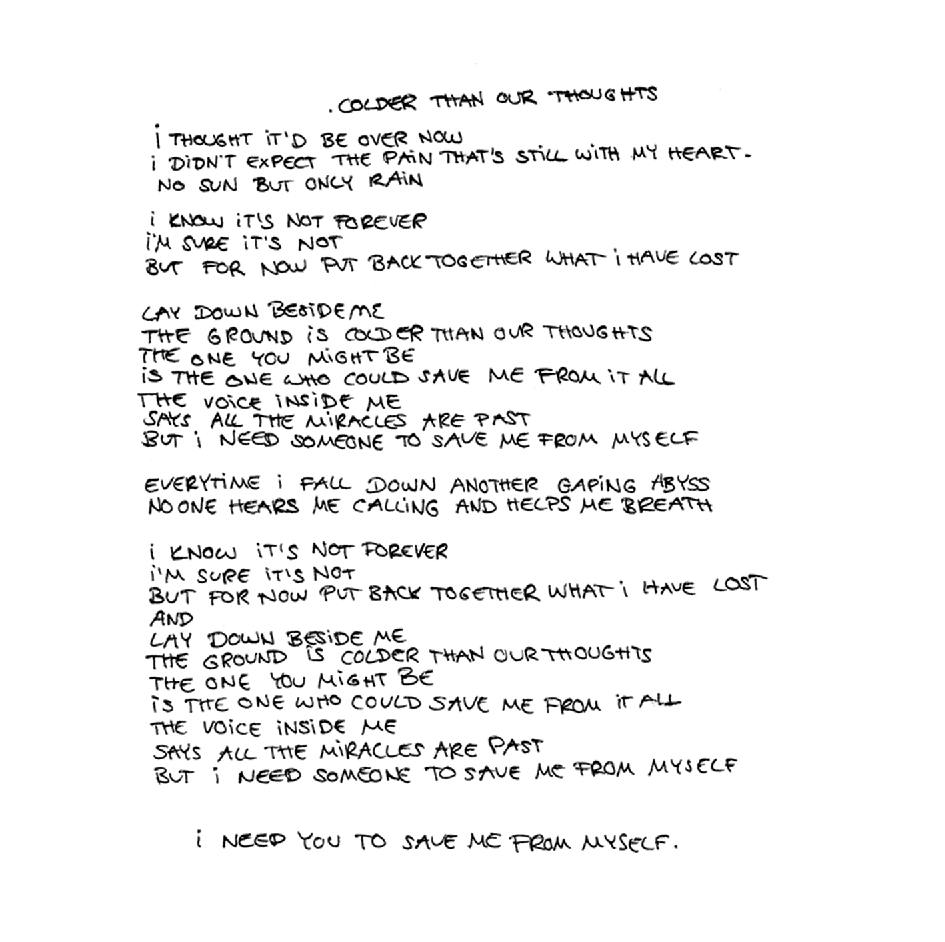 .COLDER THAN OUR THOUGHTS
i THOUGHT iT'D BE OVER NOW
i DiDN'T EXPECT THE PAiN THAT'S STiLL WiTH MY HEART.
NO SUN BUT ONLY RAiN
i KNOW iT'S NOT FOREVER
i'M SURE iT'S NOT
BUT FOR NOW PUT BACK TOGETHER WHAT i HAVE LOST
LAY DOWN BESiDE ME
THE GROUND iS COLDER THAN OUR THOUGHTS
THE ONE YOU MiGHT BE
iS THE ONE WHO COULD SAVE ME FROM iT ALL
THE VOiCE iNSiDE ME
SAYS ALL THE MiRACLES ARE PAST
BUT i NEED SOMEONE TO SAVE ME FROM MYSELF
EVERYTiME i FALL DOWN ANOTHER GAPiNG ABYSS
NO ONE HEARS ME CALLiNG AND HELPS ME BREATH
i KNOW iT'S NOT FOREVER
i'M SURE iT'S NOT
BUT FOR NOW PUT BACK TOGETHER WHAT i HAVE LOST
AND
LAY DOWN BESiDE ME
THE GROUND iS COLDER THAN OUR THOUGHTS
THE ONE YOU MiGHT BE
iS THE ONE WHO COULD SAVE ME FROM iT ALL
THE VOiCE iNSiDE ME
SAYS ALL THE MiRACLES ARE PAST
BUT i NEED SOMEONE TO SAVE ME FROM MYSELF
i NEED YOU TO SAVE ME FROM MYSELF.